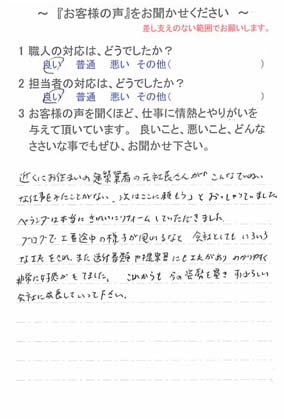 ～ 『お客様の声』をお聞かせください ～
差し支えのない範囲でお願いします。
1 職人の対応は、どうでしたか？
良い 普通 悪い その他( )
2 担当者の対応は、どうでしたか？
良い 普通 悪い その他( )
3 お客様の声を聞くほど、仕事に情熱とやりがいを
与えて頂いています。 良いこと、悪いこと、どんな
ささいな事でもぜひ、お聞かせ下さい。
近くにお住まいの建築業者の元社長さんが「こんなていねい
な仕事をみたことがない、次はここに頼もう」とおっしゃっていました。
ベランダは本当にきれいにリフォームしていただきました。
ブログで工事途中の様子が見れるなど 会社としてもいろいろ
な工夫をされ、また送付書類や提案書にも工夫があり わかりやすく
非常に好感がもてました。これからも 今の姿勢を貫き すばらしい
会社に成長していって下さい。